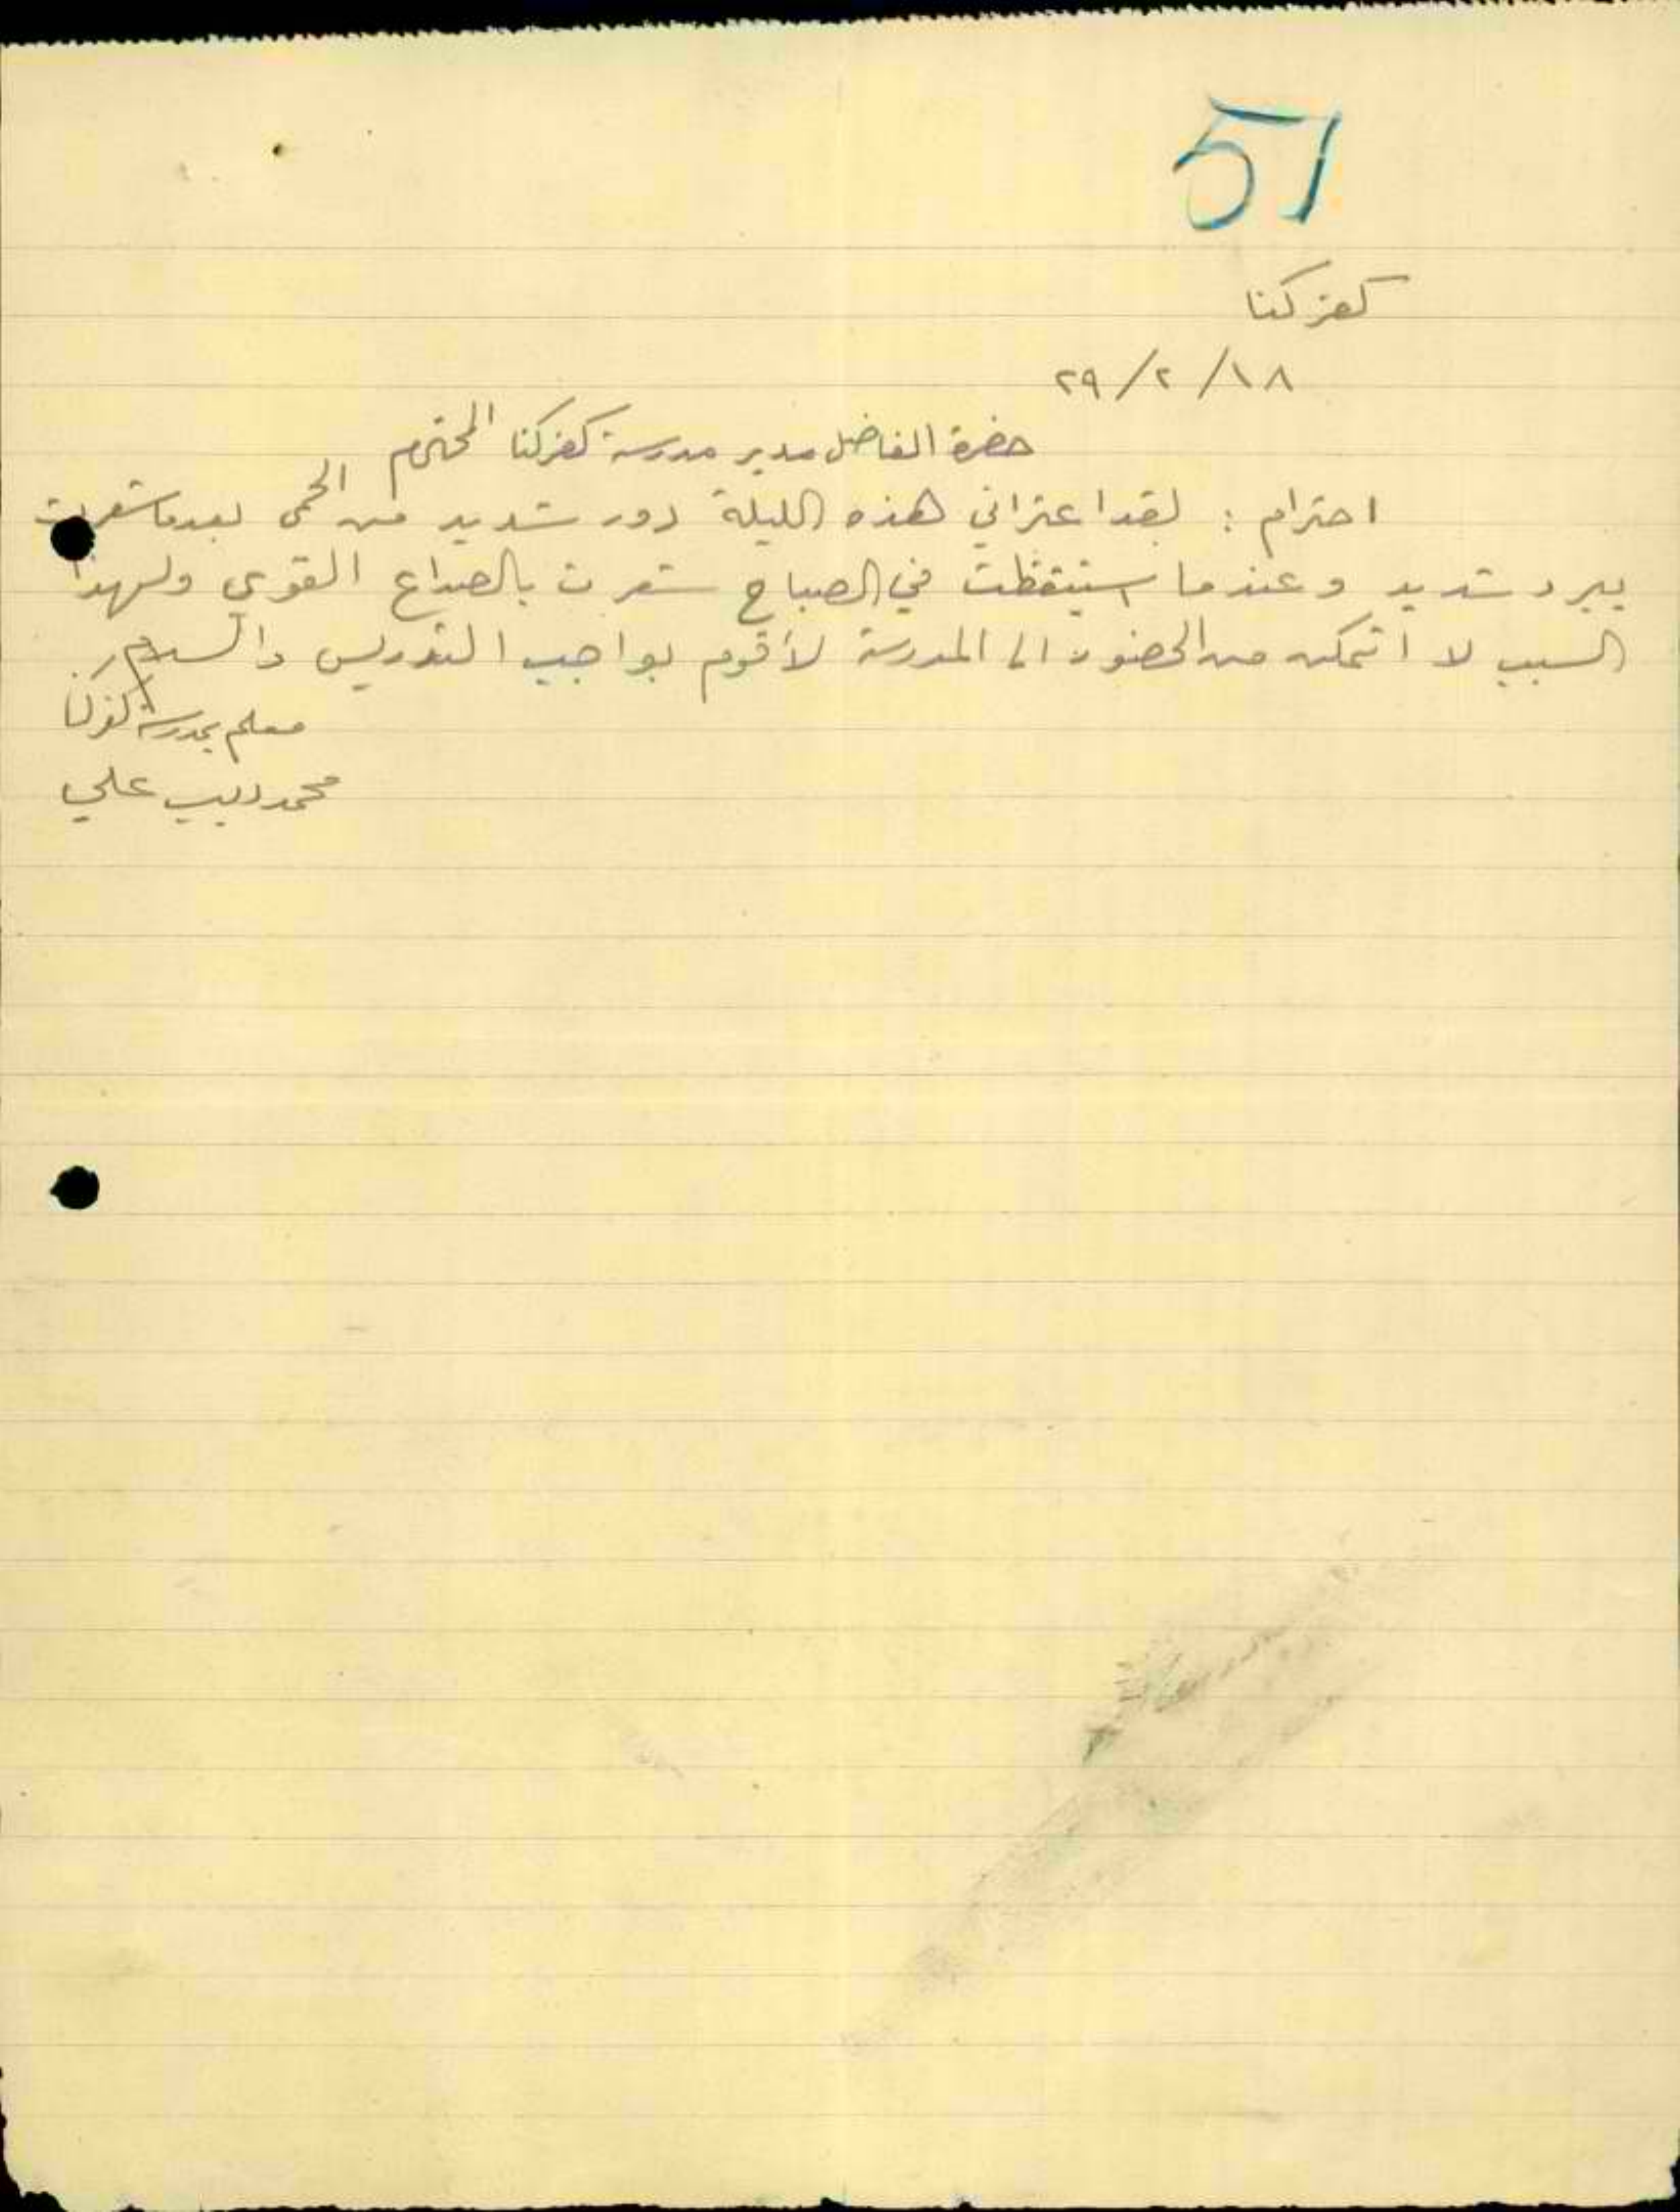 51
كفركنا
١٨/ ٢/ ٢٩
حضرة الفاضل مدير مدرسة كفركنا المحترم
احترام : لقد اعتراني هذه الليلة دور شديد من الحمى بعدما شعرت
ببرد شديد وعندما استيقظت في الصباح شعرت بالصداع القوي ولهذا
السبب لا اتمكن من الحضور الى المدرسة لأقوم بواجب التدريس والسلام
معلم بمدرسة كفركنا
محمد ديب علي